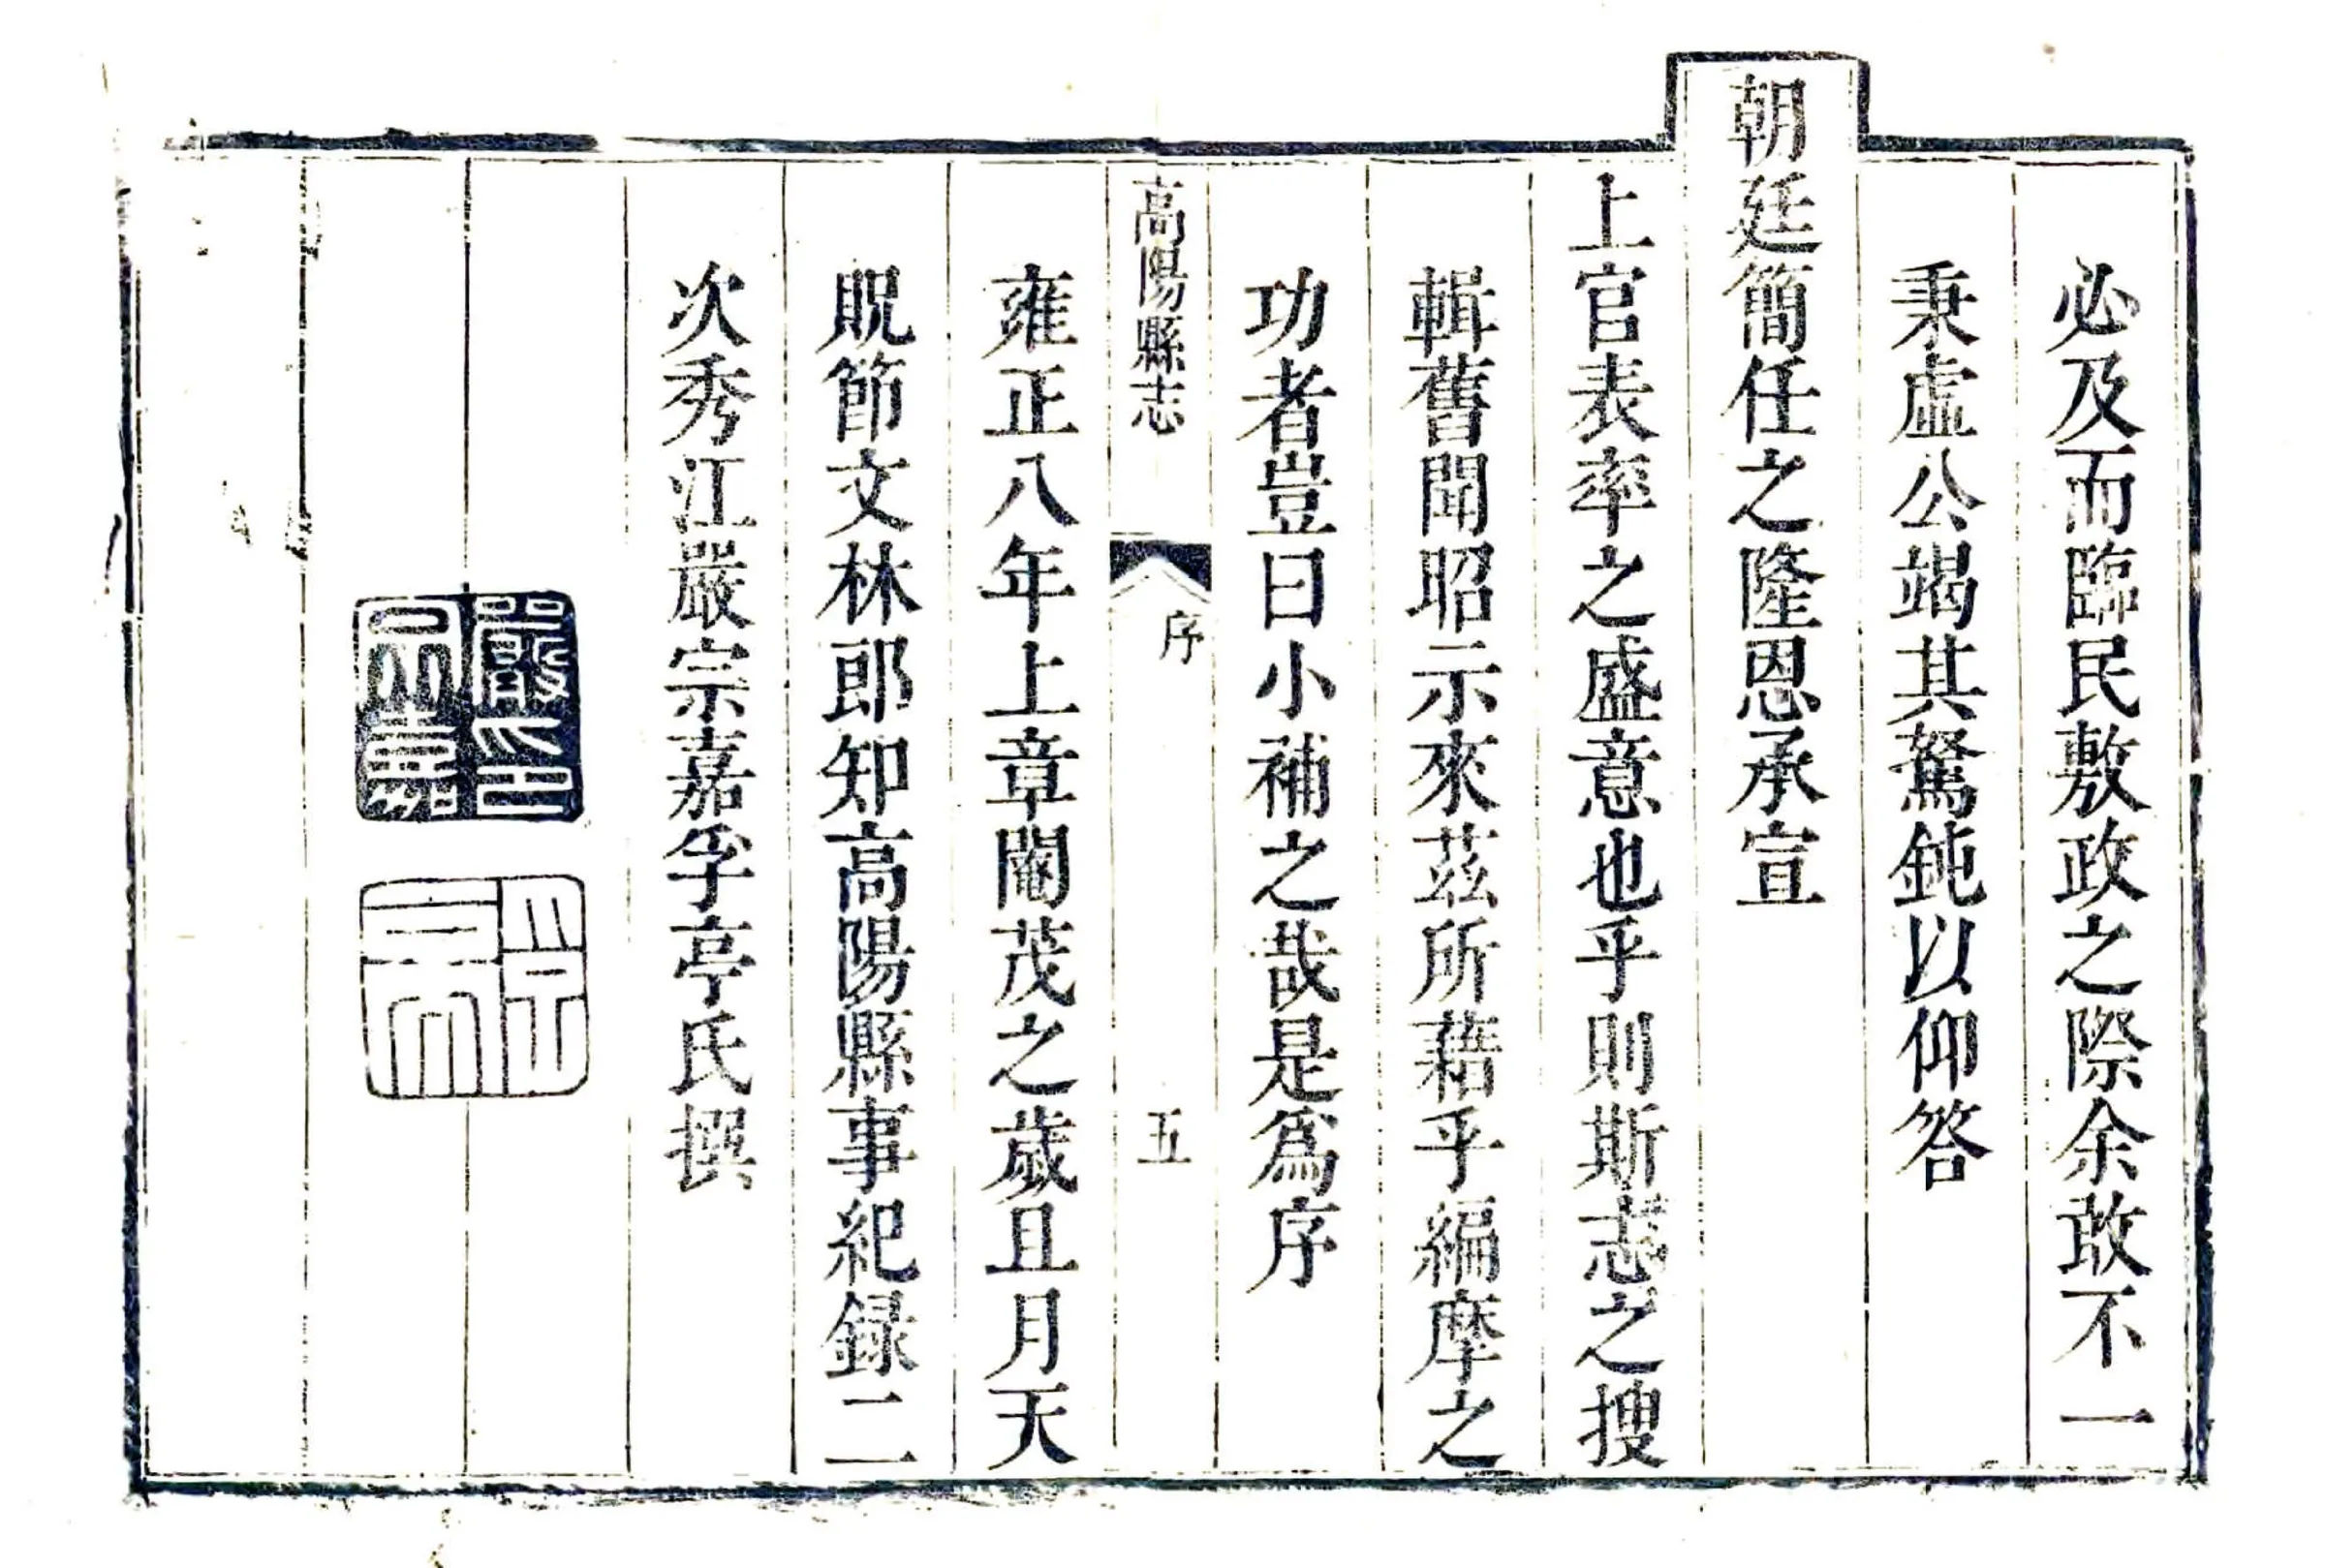 必及而臨民敷政之際余敢不一
秉虛公竭其駑鈍以仰答
朝廷簡任之隆恩承宣
上官表率之盛意也乎則斯志之搜
輯舊聞昭示來茲所藉乎編摩之
功者豈曰小補之哉是爲序
高陽縣志
序
五
雍正八年上章閹茂之歲且月天
貺節文林郎知高陽縣事紀録二
次秀江嚴宗嘉孚亭氏撰
嚴印
宗嘉